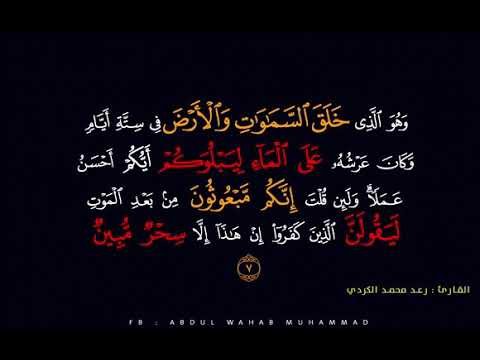 وَهُوَ ٱلَّذِى خَلَقَ ٱلسَّمَـٰوَٰتِ وَٱلْأَرْضَ فِى سِتَّةِ أَيَّامٍ
وَكَانَ عَرْشُهُۥ عَلَى ٱلْمَآءِ لِيَبْلُوَكُمْ أَيُّكُمْ أَحْسَنُ
عَمَلًا ۗ وَلَئِن قُلْتَ إِنَّكُم مَّبْعُوثُونَ مِنۢ بَعْدِ ٱلْمَوْتِ
لَيَقُولَنَّ ٱلَّذِينَ كَفَرُوٓا۟ إِنْ هَـٰذَآ إِلَّا سِحْرٌ مُّبِينٌ
٧
القارئ : رعد محمد الكردي
FB : ABDUL WAHAB MUHAMMAD